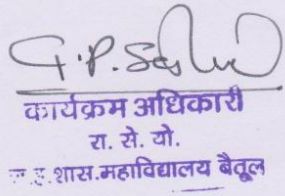 G.P. S
कार्यक्रम अधिकारी
रा. से. यो.
शास.महाविद्यालय बैतूल